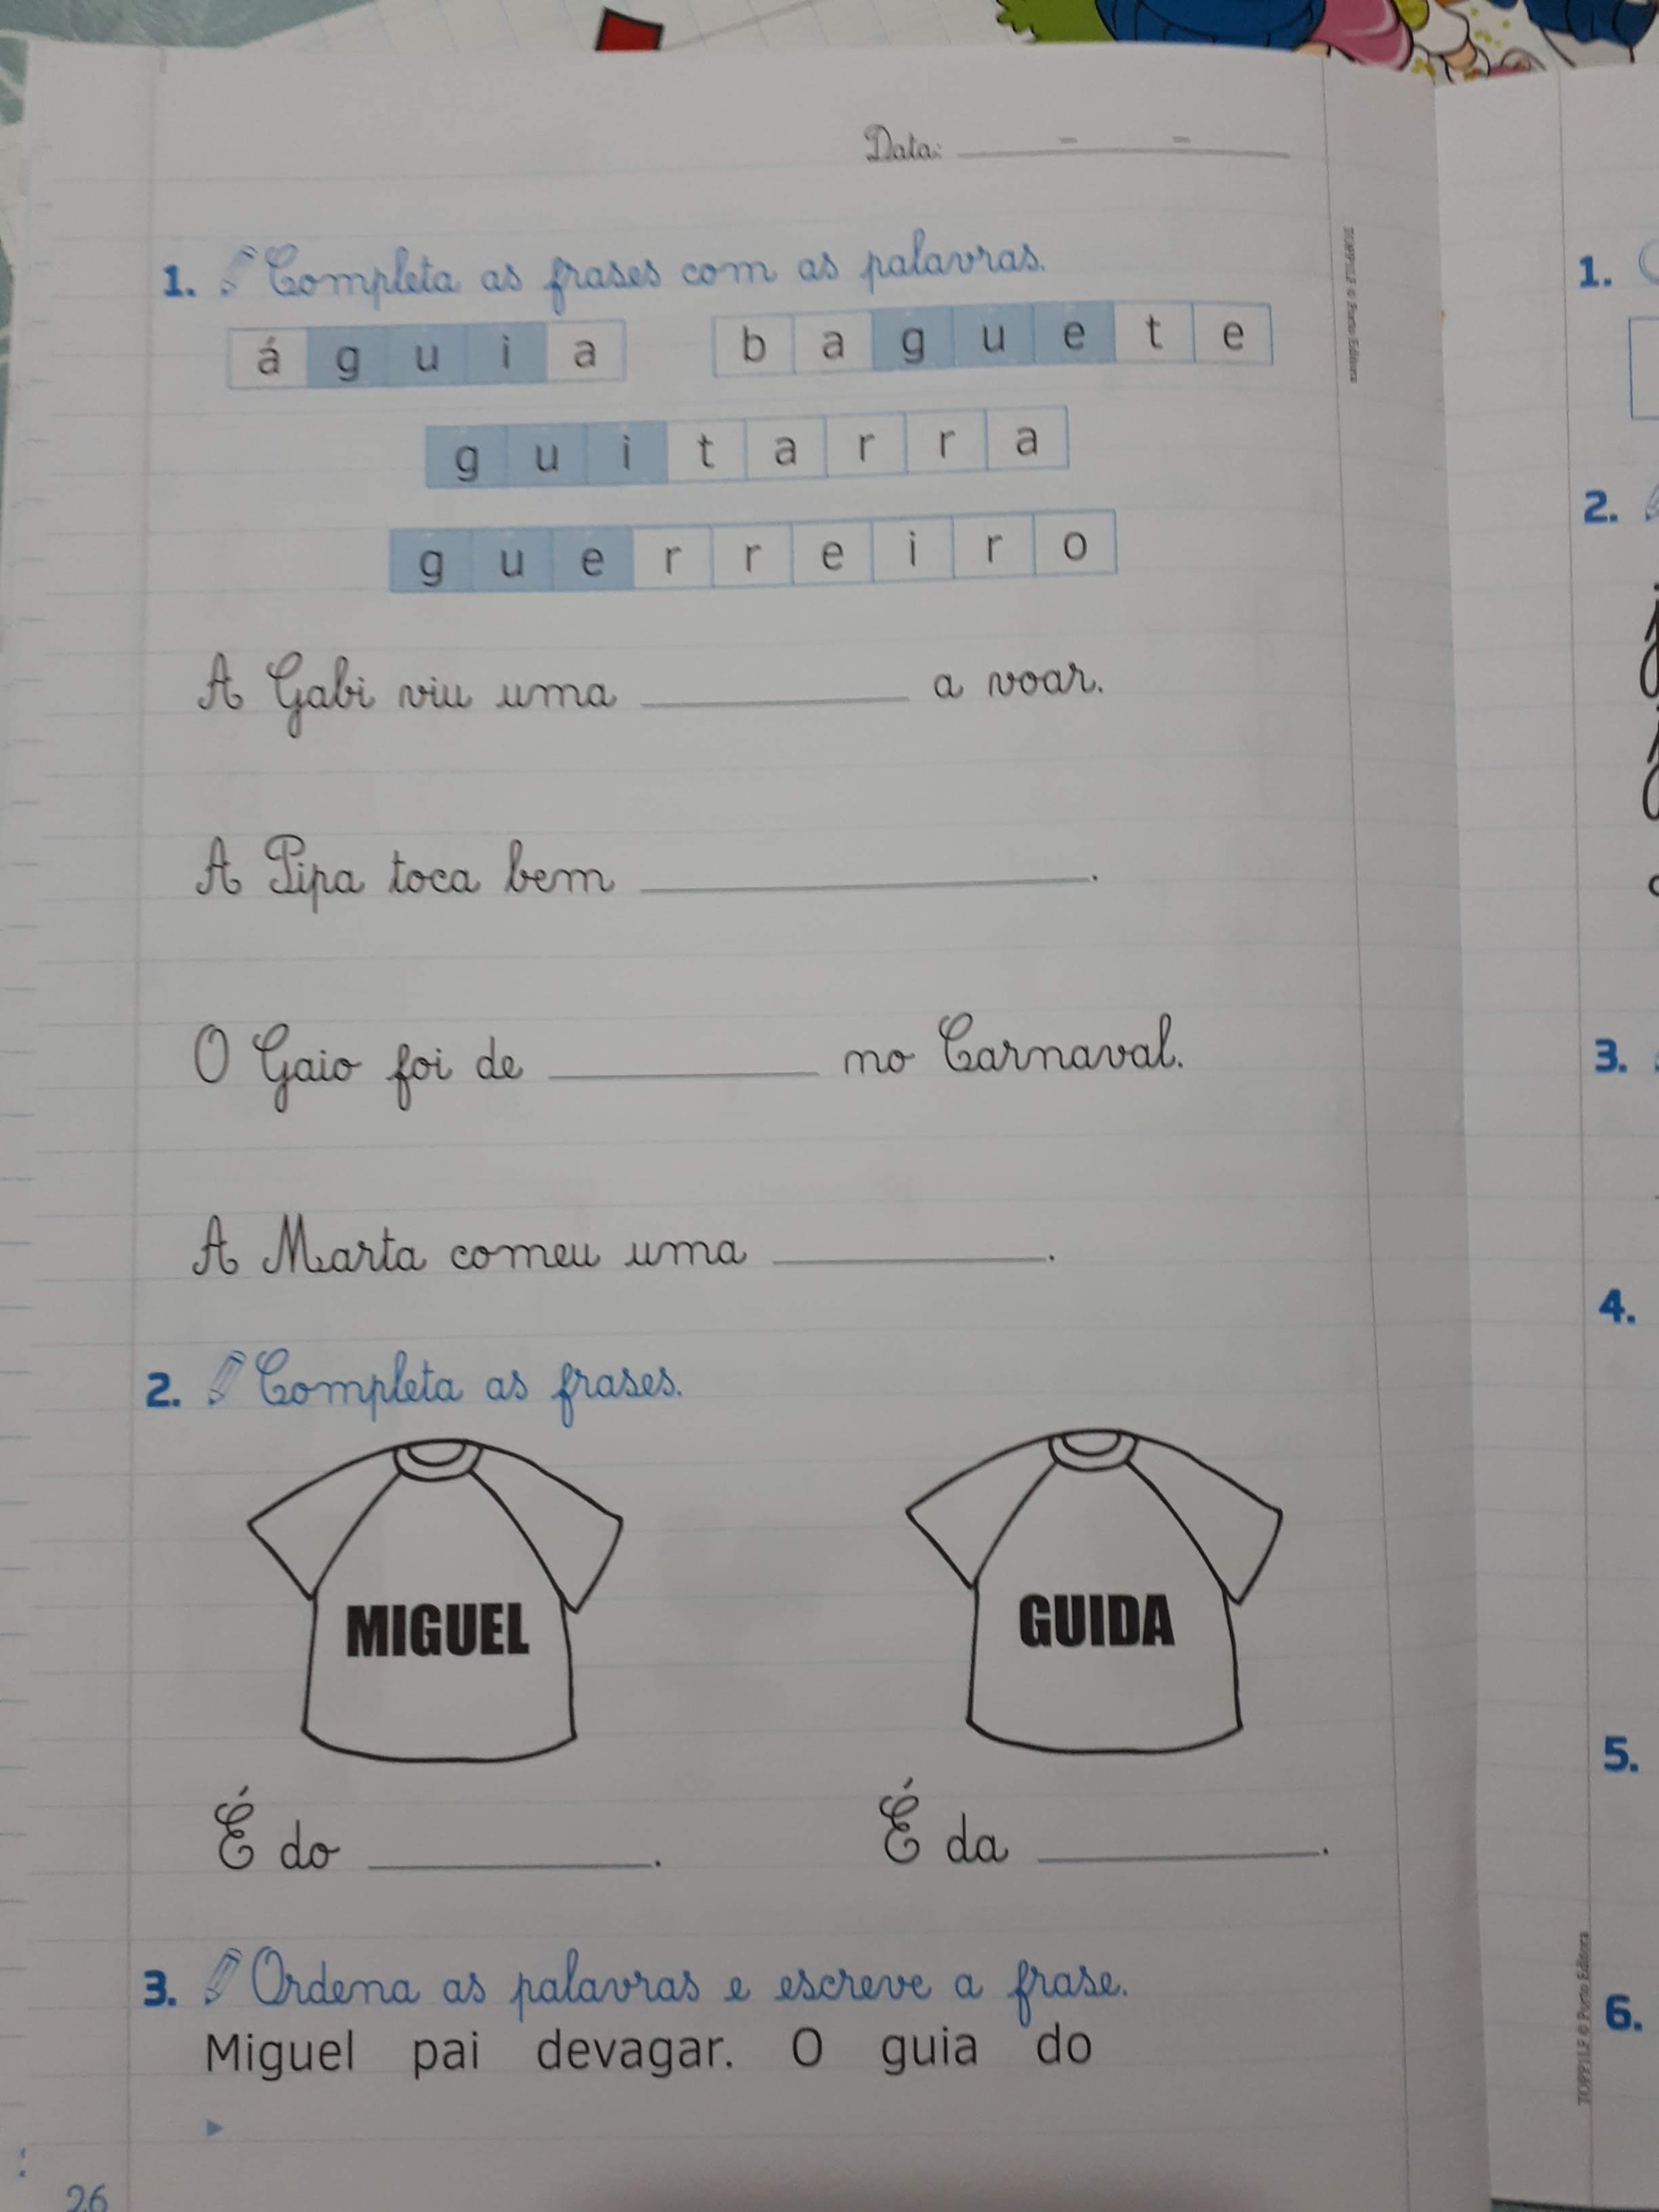 Data: ____ - ____ - ____
1. Completa as frases com as palavras.
águia baguete
guitarra
guerreiro
A Gabi viu uma ________ a voar.
A Pipa toca bem ________.
O Gaio foi de ________ no Carnaval.
A Marta comeu uma ________.
2. Completa as frases.
MIGUEL GUIDA
É do ________. É da ________.
3. Ordena as palavras e escreve a frase.
Miguel pai devagar. O guia do
26
TOPP1LF © Porto Editora
1.
2.
3.
4.
5.
6.
TOPP1LF © Porto Editora